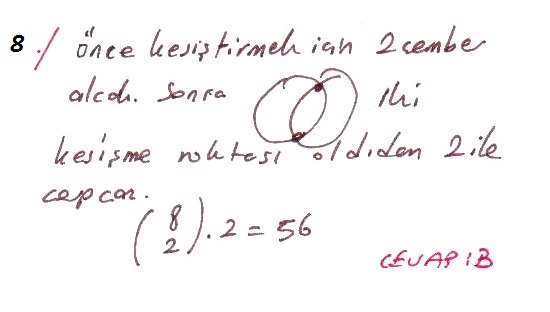 8./ önce kesiştirmek için 2 cember
alcak. Sonra iki
kesişme noktası oldıdan 2 ile
carpcaz.
(8 2) . 2 = 56
CEVAP : B